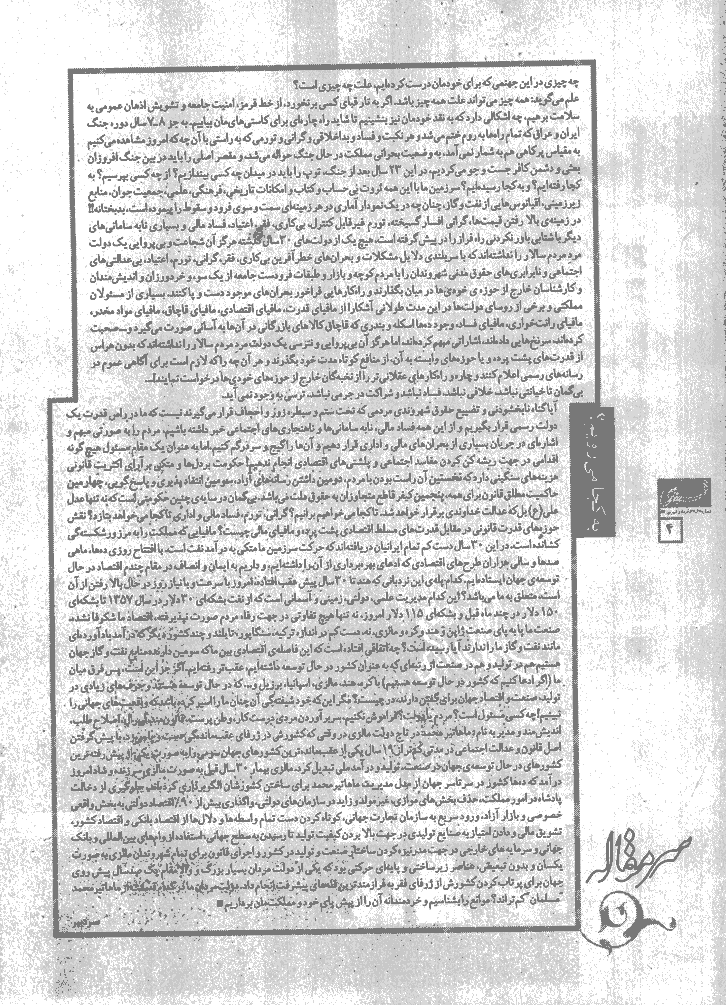 سرمقاله
به کجا می رویم؟!
۴
چه چیزی در این جهنمی که برای خودمان درست کرده‌ایم، علت چه چیزی است؟
علم می‌گوید: همه چیز می‌تواند علت همه چیز باشد. اگر به تار قبای کسی برنخورد، از خط قرمز، امنیت جامعه و تشویش اذهان عمومی به
سلامت برهیم، چه اشکالی دارد که به نقد خودمان نیز بنشینیم تا شاید راه چاره‌ای برای کاستی‌های‌مان بیابیم. به جز ۸-۷ سال دوره جنگ
ایران و عراق که تمام راه‌ها به روم ختم می‌شد و هر نکبت و فساد و بداخلاقی و گرانی و تورمی که به راستی با آن چه که امروز مشاهده می‌کنیم
به مقیاس پر کاهی هم به شمار نمی‌آمد، به وضعیت بحرانی مملکت در حال جنگ حواله می‌شد، و مقصر اصلی را باید در بین جنگ افروزان
بعثی و دشمن کافر جست و جو می‌کردیم. در این ۲۳ سال بعد از جنگ، توپ را باید در میدان چه کسی بیندازیم؟ از چه کسی بپرسیم؟ به
کجا رفته‌ایم؟ و به کجا رسیده‌ایم؟ سرزمین ما با این همه ثروت بی‌حساب و کتاب و امکانات تاریخی، فرهنگی، علمی، جمعیت جوان، منابع
زیرزمینی، اقیانوس‌هایی از نفت و گاز، چنان چه در یک نمودار آماری در هر زمینه‌ای سمت و سوی فرود و سقوط را پیموده است، بدبختانه!!
در زمینه‌ی بالا رفتن قیمت‌ها، گرانی افسار گسیخته، تورم غیرقابل کنترل، بی‌کاری، فقر، اعتیاد، فساد مالی و بسیاری نابه سامانی‌های
دیگر با شتابی باور نکردنی راه فراز را در پیش گرفته است، هیچ یک از دولت‌های ۳۰ سال گذشته هرگز آن شجاعت و بی‌پروایی یک دولت
مرد مردم سالار را نداشته‌اند که با سربلندی دلایل مشکلات و بحران‌های خطرآفرین بی‌کاری، فقر، گرانی، تورم، اعتیاد، بی‌عدالتی‌های
اجتماعی و نابرابری‌های حقوق مدنی شهروندان را با مردم کوچه و بازار و طبقات فرودست جامعه از یک سو، و خردورزان و اندیش‌مندان
و کارشناسان خارج از حوزه‌ی خودی‌ها در میان بگذارند و راه‌کارهایی فراخور بحران‌های موجود دست و پا کنند. بسیاری از مسئولان
مملکتی و برخی از روسای دولت‌ها در این مدت طولانی آشکارا از مافیای قدرت، مافیای اقتصادی، مافیای قاچاق، مافیای مواد مخدر،
مافیای رانت‌خواری، مافیای فساد، وجود ده‌ها اسکله و بندری که قاچاق کالاهای بازرگانی در آن‌ها به آسانی صورت می‌گیرد و صحبت
کرده‌اند، سرنخ‌هایی داده‌اند، اشاراتی مبهم کرده‌اند، اما هرگز آن بی‌پروایی و نترسی یک دولت مرد مردم سالار را نداشته‌اند که بدون هراس
از قدرت‌های پشت پرده و یا حوزه‌های وابسته به آن، از منافع کوتاه مدت خود بگذرند و هر آن چه را که لازم است برای آگاهی عموم در
رسانه‌های رسمی اعلام کنند و چاره و راه‌کارهای عقلانی‌تر را از نخبه‌گان خارج از حوزه‌های خودی‌ها درخواست نمایند!...
بی‌گمان تا خیانتی نباشد، خلافی نباشد، فساد نباشد و شراکت در جرمی نباشد، ترسی به وجود نمی‌آید.
آیا گناه نابخشودنی و تضییع حقوق شهروندی مردمی که تحت ستم و سیطره زور و اجحاف قرار می‌گیرند نیست که ما در راس قدرت یک
دولت رسمی قرار بگیریم و از این همه فساد مالی، نابه سامانی‌ها و ناهنجاری‌های اجتماعی خبر داشته باشیم. مردم را به صورتی مبهم و
اشاره‌ای در جریان بسیاری از بحران‌های مالی و اداری قرار دهیم و آن‌ها را گیج و سردرگم کنیم، اما به عنوان یک مقام مسئول هیچ گونه
اقدامی در جهت ریشه کن کردن مفاسد اجتماعی و پلشتی‌های اقتصادی انجام ندهیم! حکومت بر دل‌ها و متکی بر آرای اکثریت قانونی
هزینه‌های سنگینی دارد که نخستین آن راست بودن با مردم، دومین داشتن رسانه‌های آزاد، سومین انتقاد پذیری و پاسخ‌گویی، چهارمین
حاکمیت مطلق قانون برای همه، پنجمین کیفر قاطع متجاوزان به حقوق ملت می‌باشد. بی‌گمان در سایه‌ی چنین حکومتی است که نه تنها عدل
علی(ع) بل که عدالت خداوندی برقرار خواهد شد. تا کجا می‌خواهیم برانیم؟ گرانی، تورم، فساد مالی و اداری تا کجا می‌خواهد بتازد؟ نقش
حوزه‌های قدرت قانونی در مقابل قدرت‌های مسلط اقتصادی پشت پرده، و مافیای مالی چیست؟ مافیایی که مملکت را به مرز ورشکستگی
کشانده است. در این ۳۰ سال دست کم تمام ایرانیان دریافته‌اند که حرکت سرزمین ما متکی به درآمد نفت است. با افتتاح روزی ده‌ها، ماهی
صدها و سالی هزاران طرح‌های اقتصادی که ادعای بهره‌برداری از آن را داشته‌ایم، و داریم به ایمان و انصاف در مقام چندم اقتصاد در حال
توسعه‌ی جهان ایستاده‌ایم. کدام پله‌ی این نردبانی که هند تا ۳۰ سال پیش عقب افتاده، امروز با سرعت و با نیاز روز در حال بالا رفتن از آن
است، متعلق به ما می‌باشد؟ این کدام مدیریت علمی، دولتی، زمینی و آسمانی است که از نفت بشکه‌ای ۳۰ دلار در سال ۱۳۵۷ تا بشکه‌ای
۱۵۰ دلار در چند ماه قبل و بشکه‌ای ۱۱۵ دلار امروز، نه تنها هیچ تفاوتی در جهت رفاه مردم صورت نپذیرفته، اقتصاد ما شکوفا نشده،
هستیم هم در تولید و هم در صنعت از رتبه‌ای که به عنوان کشور در حال توسعه داشته‌ایم، عقب‌تر رفته‌ایم. آگر جز این است، پس فرق میان
ما (اگر ادعا کنیم که کشور در حال توسعه هستیم) با کره، هند، مالزی، اسپانیا، برزیل و... که در حال توسعه هستند و حرف‌های زیادی در
اصل قانون و عدالت اجتماعی در مدتی کم‌تر از ۱۹ سال یکی از عقب‌مانده‌ترین کشورهای جهان سومی را به صورت یکی از پیش رفته‌ترین
کشورهای در حال توسعه‌ی جهان در صنعت، تولید و درآمد ملی تبدیل کرد. مالزی بیمار ۳۰ سال قبل به صورت مالزی سرزنده و شاد امروز
درآمد که ده‌ها کشور در سرتاسر جهان از مدل مدیریت ماهاتیر محمد برای ساختن کشورشان الگوبرداری کرده‌اند. جلوگیری از دخالت
پادشاه در امور مملکت، حذف بخش‌های موازی، غیرمولد و زاید در سازمان‌های دولتی، واگذاری بیش از ۹۰٪ اقتصاد دولتی به بخش واقعی
خصوصی و بازار آزاد، ورود سریع به سازمان تجارت جهانی، کوتاه کردن دست تمام واسطه‌ها و دلال‌ها از اقتصاد بانکی و اقتصاد کشور،
تشویق مالی و دادن امتیاز به صنایع تولیدی در جهت بالا بردن کیفیت تولید تا رسیدن به سطح جهانی، استفاده از وام‌های بین‌المللی و بانک
جهانی و سرمایه‌های خارجی در جهت مدرنیزه کردن ساختار صنعت و تولید در کشور و اجرای قانون برای تمام شهروندان مالزی به صورت
یکسان و بدون تبعیض، عناصر زیرساختی و پایه‌ای حرکتی بود که یکی از دولت مردان بسیار بزرگ و والا مقام یک صد سال پیش روی
مسلمان کم‌ترند؟ موانع را بشناسیم و خردمندانه آن را از پیش پای خود و مملکت‌مان برداریم ■
سردبیر